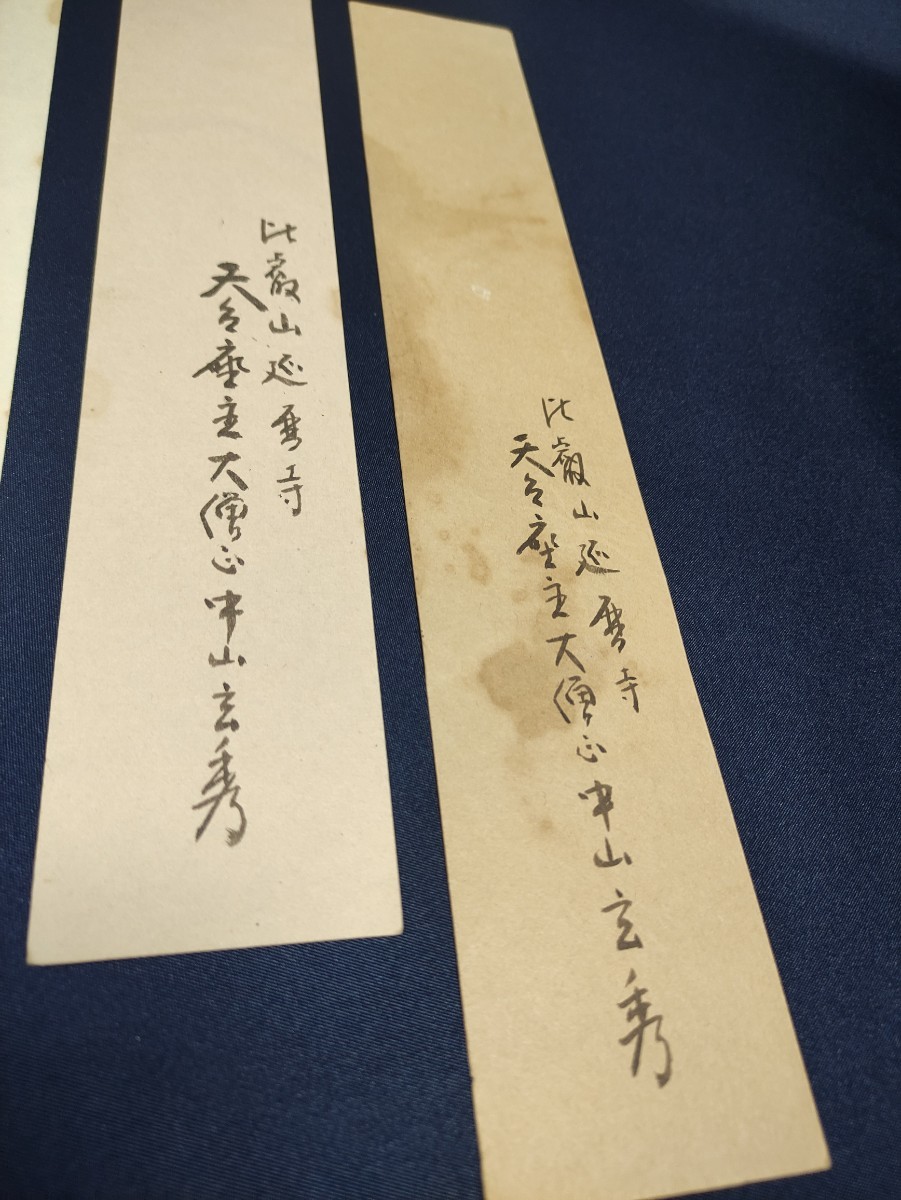 比叡山延暦寺
天台座主大僧正中山玄秀
比叡山延暦寺
天台座主大僧正中山玄秀